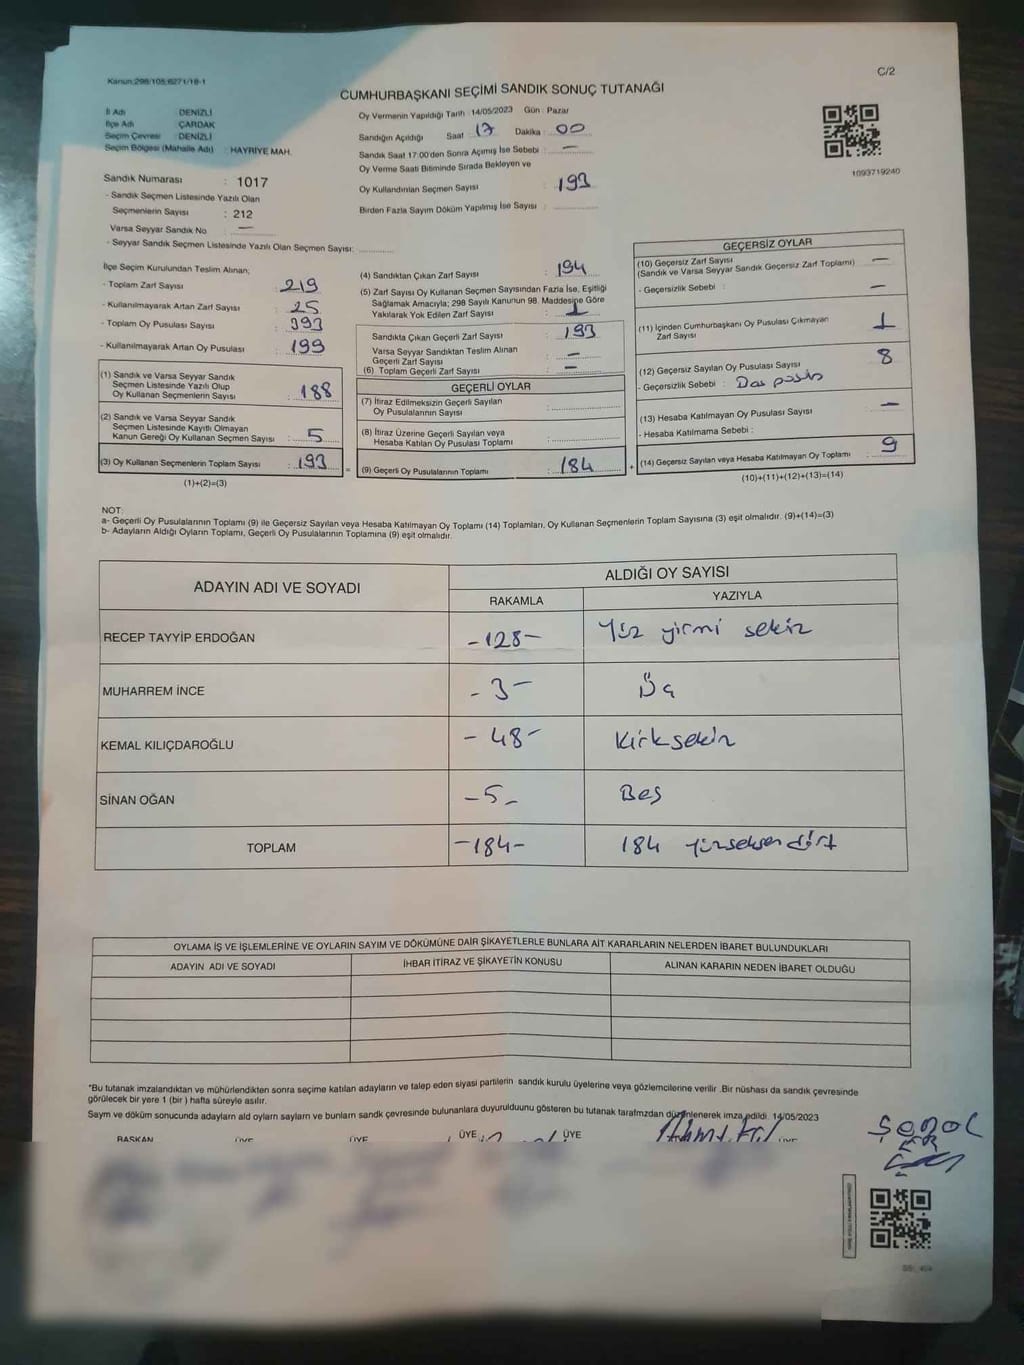 Kanun:298/105:6271/18-1
C/2
CUMHURBAŞKANI SEÇİMİ SANDIK SONUÇ TUTANAĞI
İl Adı : DENİZLİ
İlçe Adı : ÇARDAK
Seçim Çevresi : DENİZLİ
Seçim Bölgesi (Mahalle Adı) : HAYRİYE MAH.
Sandık Numarası : 1017
- Sandık Seçmen Listesinde Yazılı Olan
Seçmenlerin Sayısı : 212
Varsa Seyyar Sandık No : —
- Seyyar Sandık Seçmen Listesinde Yazılı Olan Seçmen Sayısı: ............
Oy Vermenin Yapıldığı Tarih : 14/05/2023 Gün : Pazar
Sandığın Açıldığı Saat : 17 Dakika : 00
Sandık Saat 17:00'den Sonra Açımış İse Sebebi : —
Oy Verme Saati Bitiminde Sırada Bekleyen ve
Oy Kullandırılan Seçmen Sayısı : 193
Birden Fazla Sayım Döküm Yapılmış İse Sayısı : ............
1093719240
İlçe Seçim Kurulundan Teslim Alınan;
- Toplam Zarf Sayısı : 219
- Kullanılmayarak Artan Zarf Sayısı : 25
- Toplam Oy Pusulası Sayısı : 393
- Kullanılmayarak Artan Oy Pusulası : 199
(1) Sandık ve Varsa Seyyar Sandık
Seçmen Listesinde Yazılı Olup
Oy Kullanan Seçmenlerin Sayısı : 188
(2) Sandık ve Varsa Seyyar Sandık
Seçmen Listesinde Kayıtlı Olmayan
Kanun Gereği Oy Kullanan Seçmen Sayısı : 5
(3) Oy Kullanan Seçmenlerin Toplam Sayısı : 193
(1)+(2)=(3)
(4) Sandıktan Çıkan Zarf Sayısı : 194
(5) Zarf Sayısı Oy Kullanan Seçmen Sayısından Fazla İse, Eşitliği
Sağlamak Amacıyla; 298 Sayılı Kanunun 98. Maddesine Göre
Yakılarak Yok Edilen Zarf Sayısı : 1
Sandıkta Çıkan Geçerli Zarf Sayısı : 193
Varsa Seyyar Sandıktan Teslim Alınan
Geçerli Zarf Sayısı : —
(6) Toplam Geçerli Zarf Sayısı : —
GEÇERLİ OYLAR
(7) İtiraz Edilmeksizin Geçerli Sayılan
Oy Pusulalarının Sayısı : ............
(8) İtiraz Üzerine Geçerli Sayılan veya
Hesaba Katılan Oy Pusulası Toplamı : ............
=
(9) Geçerli Oy Pusulalarının Toplamı : 184
+
GEÇERSİZ OYLAR
(10) Geçersiz Zarf Sayısı : —
(Sandık ve Varsa Seyyar Sandık Geçersiz Zarf Toplamı)
- Geçersizlik Sebebi : —
(11) İçinden Cumhurbaşkanı Oy Pusulası Çıkmayan
Zarf Sayısı : 1
(12) Geçersiz Sayılan Oy Pusulası Sayısı : 8
- Geçersizlik Sebebi :
(13) Hesaba Katılmayan Oy Pusulası Sayısı : —
- Hesaba Katılmama Sebebi :
(14) Geçersiz Sayılan veya Hesaba Katılmayan Oy Toplamı : 9
(10)+(11)+(12)+(13)=(14)
NOT:
a- Geçerli Oy Pusulalarının Toplamı (9) ile Geçersiz Sayılan veya Hesaba Katılmayan Oy Toplamı (14) Toplamları, Oy Kullanan Seçmenlerin Toplam Sayısına (3) eşit olmalıdır. (9)+(14)=(3)
b- Adayların Aldığı Oyların Toplamı, Geçerli Oy Pusulalarının Toplamına (9) eşit olmalıdır.
ADAYIN ADI VE SOYADI
ALDIĞI OY SAYISI
RAKAMLA YAZIYLA
RECEP TAYYİP ERDOĞAN -128- Yüz yirmi sekiz
MUHARREM İNCE -3- Üç
KEMAL KILIÇDAROĞLU -48- Kırksekiz
SİNAN OĞAN -5- Beş
TOPLAM -184- 184 yüzseksen dört
OYLAMA İŞ VE İŞLEMLERİNE VE OYLARIN SAYIM VE DÖKÜMÜNE DAİR ŞİKAYETLERLE BUNLARA AİT KARARLARIN NELERDEN İBARET BULUNDUKLARI
ADAYIN ADI VE SOYADI İHBAR İTİRAZ VE ŞİKAYETİN KONUSU ALINAN KARARIN NEDEN İBARET OLDUĞU
*Bu tutanak imzalandıktan ve mühürlendikten sonra seçime katılan adayların ve talep eden siyasi partilerin sandık kurulu üyelerine veya gözlemcilerine verilir .Bir nüshası da sandık çevresinde
görülecek bir yere 1 (bir ) hafta süreyle asılır.
Sayım ve döküm sonucunda adayların ald oyların sayların ve bunların sandk çevresinde bulunanlara duyurulduunu gösteren bu tutanak tarafmzdan düzenlenerek imza edildi. 14/05/2023
BAŞKAN ÜYE ÜYE ÜYE ÜYE ÜYE
ŞENOL
ER